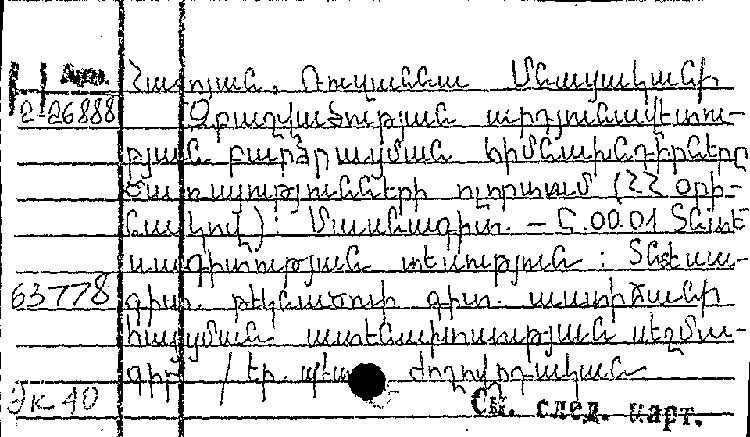 Н Арм. Հակոյան, Ռուզաննա Մնացականի
2-26888 Զբաղվածության արդյունավետու-
թյան բարձրացման հիմնախնդիրները
ծառայությունների ոլորտում (ՀՀ օրի-
նակով): Մասնագիտ. – Ը.00.01 Տնտե
սագիտության տեսություն: Տնտեսա-
63778 գիտ. թեկնածուի գիտ. աստիճանի
հայցման ատենախոսության սեղմա-
գիր / Եր. պետ. ժողովրդական
Эк 40 См. след. карт.